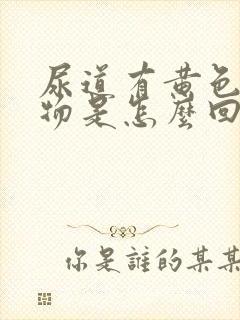 尿道有黄色
物是怎麼回
你是誰的某某